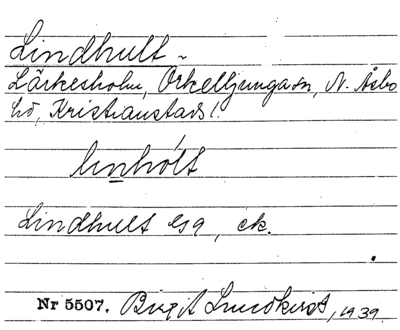 Lindhult ~
Lärkesholm, Örkelljunga sn, N. Åsbo
hd, Kristianstads l.
linhólt
Lindhult lg, ek.
Nr 5507. Birgit Lundkvist, 1939